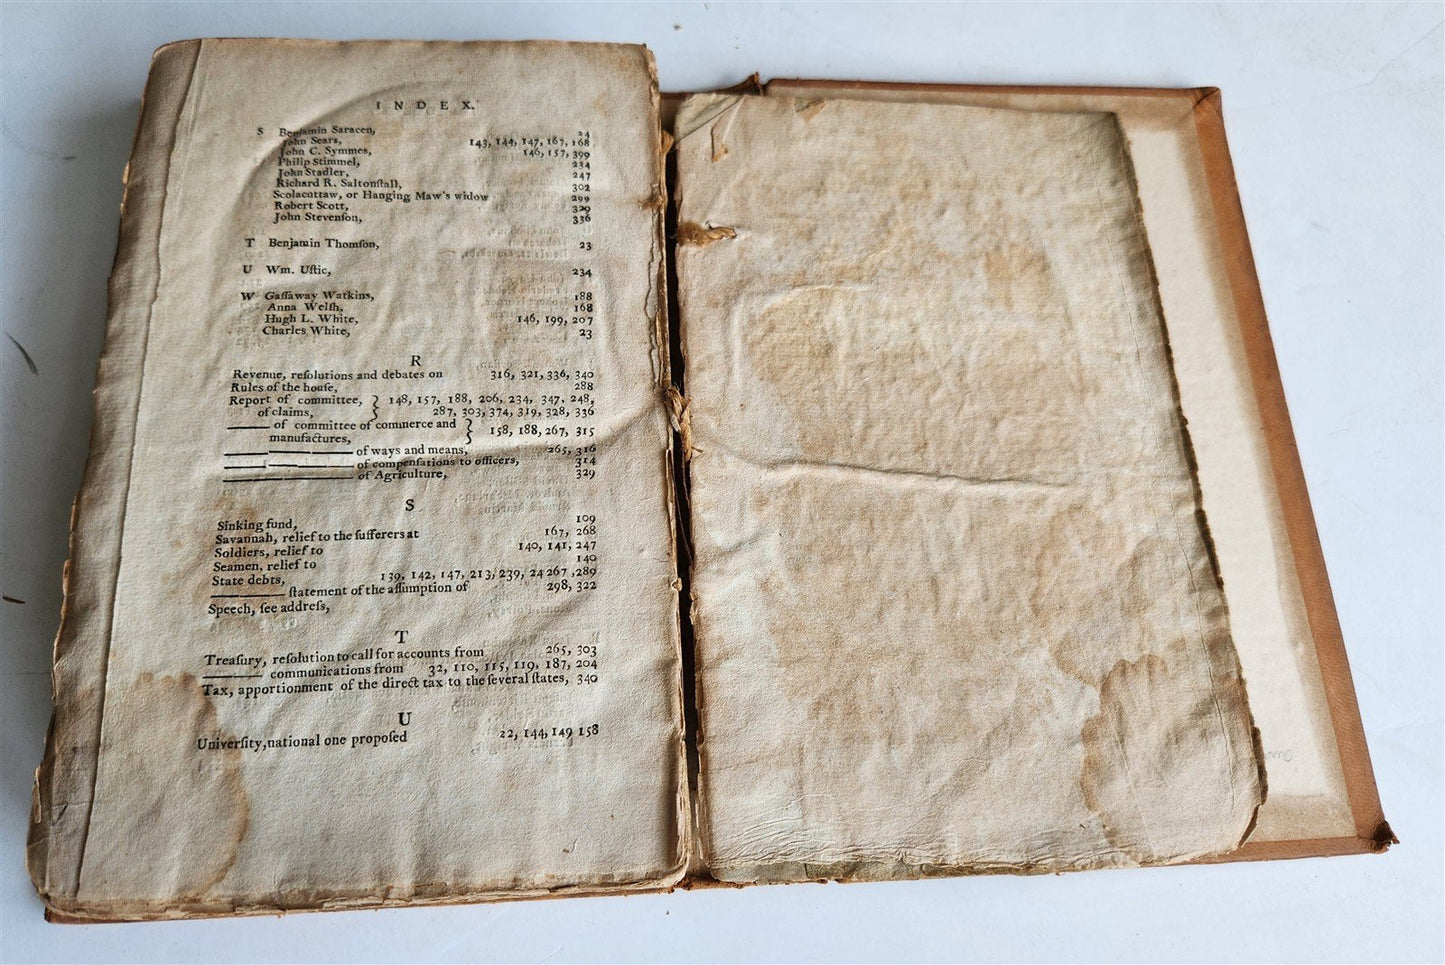 I N D E X.
S Benjamin Saracen, 24
John Sears, 143, 144, 147, 167, 168
John C. Symmes, 146, 157, 399
Philip Stimmel, 234
John Stadler, 247
Richard R. Saltonſtall, 302
Scolacuttaw, or Hanging Maw's widow 299
Robert Scott, 329
John Stevenſon, 336
T Benjamin Thomſon, 23
U Wm. Uſtic, 234
W Gaſſaway Watkins, 188
Anna Welſh, 168
Hugh L. White, 146, 199, 207
Charles White, 23
R
Revenue, reſolutions and debates on 316, 321, 336, 340
Rules of the houſe, 288
Report of committee, } 148, 157, 188, 206, 234, 347, 248,
of claims, 287, 303, 374, 319, 328, 336
—— of committee of commerce and } 158, 188, 267, 315
manufactures,
—————— of ways and means, 265, 316
—————— of compenſations to officers, 314
—————— of Agriculture, 329
S
Sinking fund, 109
Savannah, relief to the ſufferers at 167, 268
Soldiers, relief to 140, 141, 247
Seamen, relief to 140
State debts, 139, 142, 147, 213, 239, 24 267 ,289
———— ſtatement of the aſſumption of 298, 322
Speech, ſee addreſs,
T
Treaſury, reſolution to call for accounts from 265, 303
——— communications from 32, 110, 115, 119, 187, 204
Tax, apportionment of the direct tax to the ſeveral ſtates, 340
U
Univerſity, national one propoſed 22, 144, 149 158